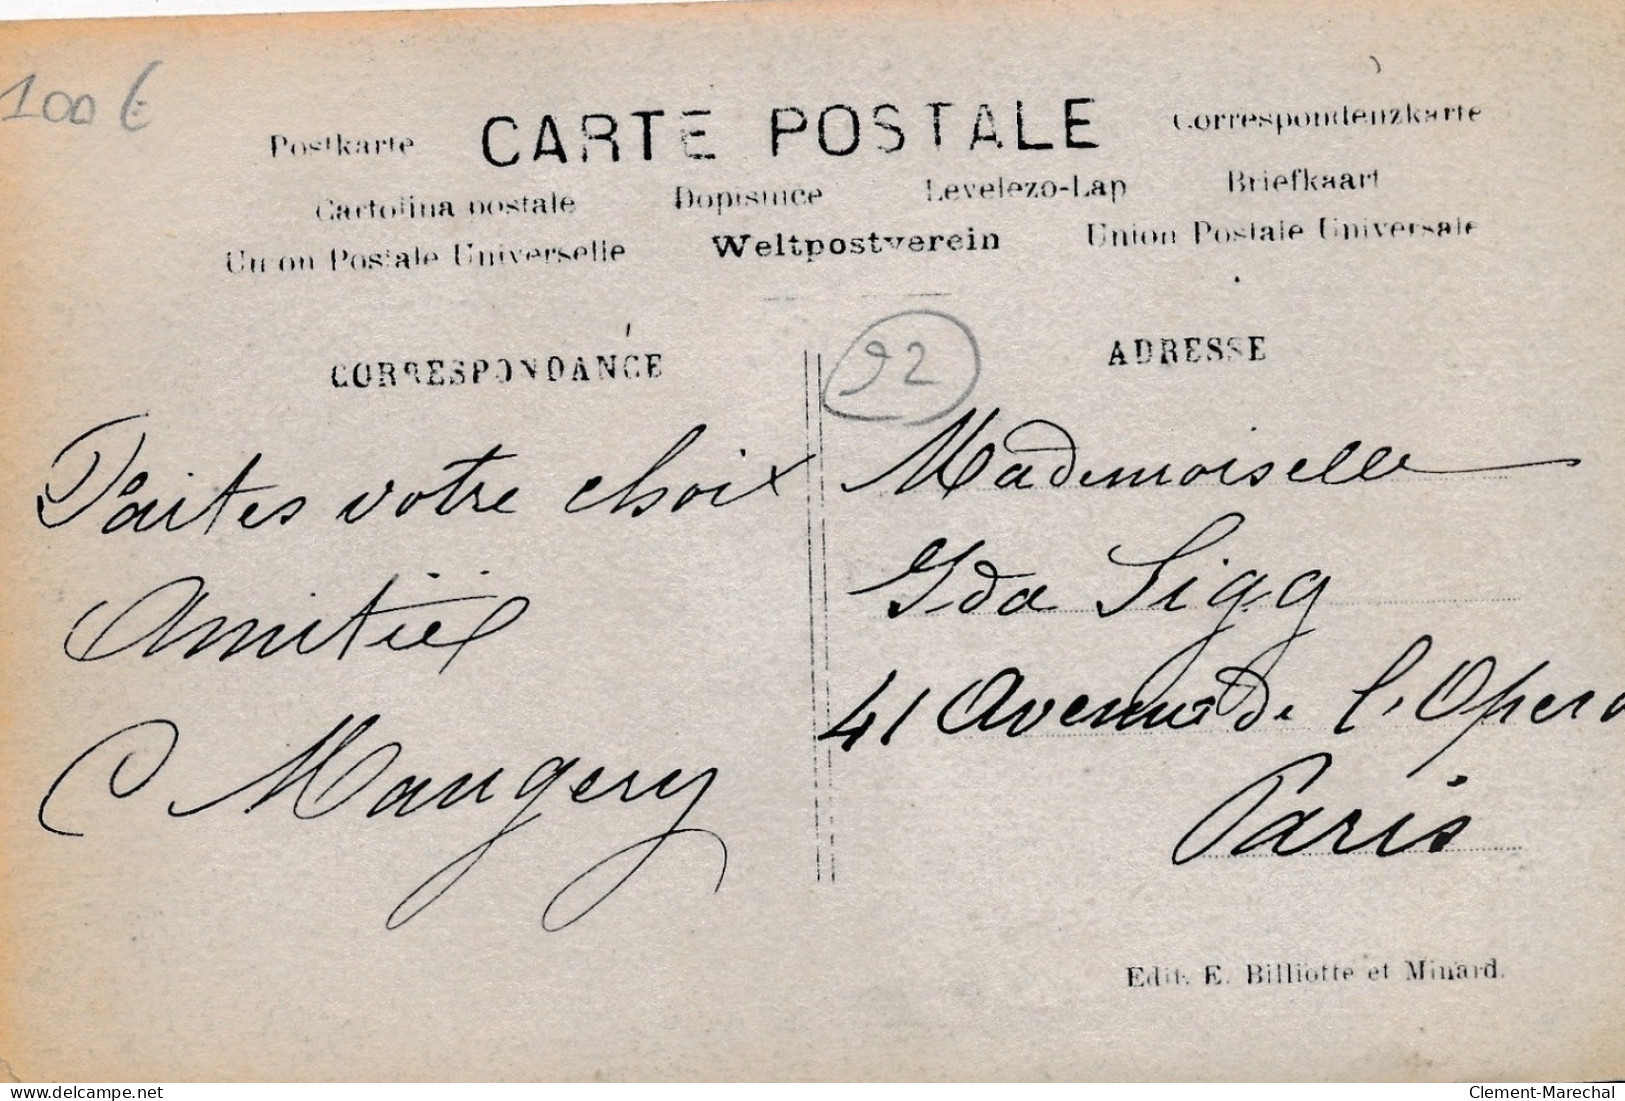 100€
CARTE POSTALE
Postkarte
Correspondenzkarte
Cartolina postale
Dopisnice
Levelezo-Lap
Briefkaart
Union Postale Universelle
Weltpostverein
Union Postale Universale
CORRESPONDANCE
92
ADRESSE
Faites votre choix
Amitiés
C Maugery
Mademoiselle
Ida Sigg
41 Avenue de l'Opera
Paris
Edit. E. Billiotte et Minard.
www.delcampe.net
Clement-Marechal